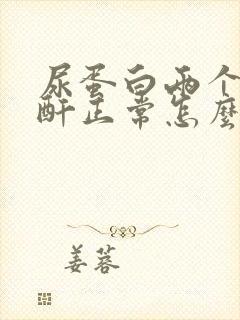 尿蛋白两个
酐正常怎麽
姜蓉